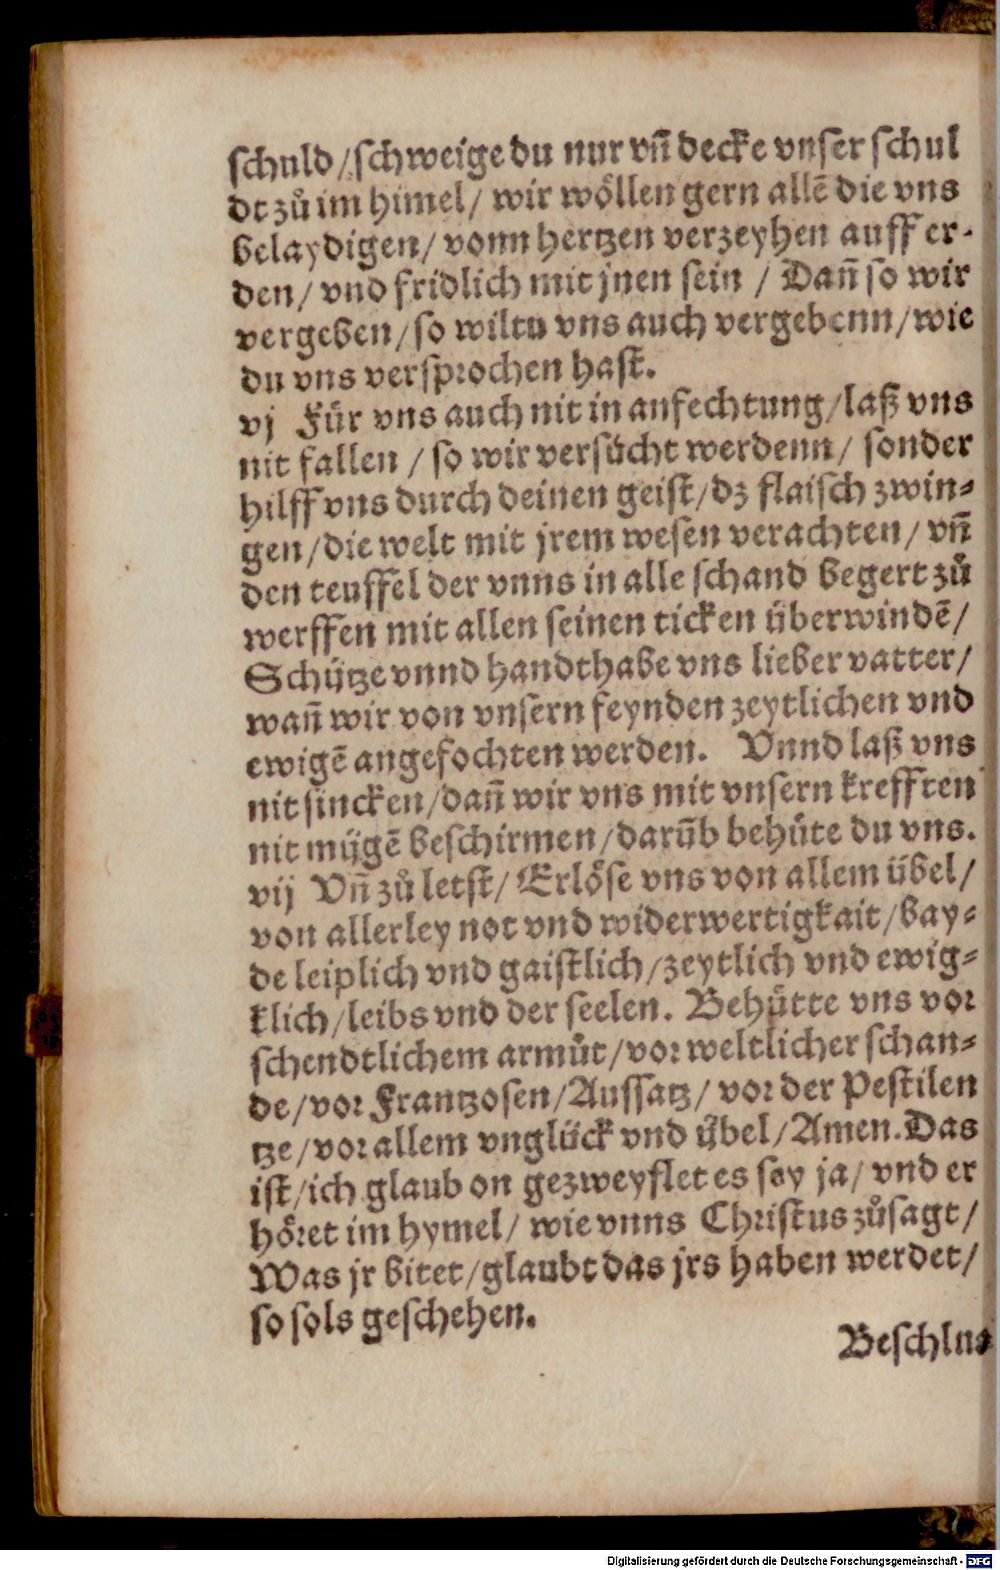 schuld/schweige du nur vñ decke vnser schul
dt zů im himel/ wir wöllen gern allē die vns
belaydigen/ vonn hertzen verzeyhen auff er-
den/ vnd fridlich mit jnen sein / Dañ so wir
vergeben/so wiltu vns auch vergebenn/wie
du vns versprochen hast.
vj Für vns auch nit in anfechtung/laß vns
nit fallen / so wir versücht werdenn/ sonder
hilff vns durch deinen geist/dz flaisch zwin-
gen/die welt mit jrem wesen verachten/ vñ
den teuffel der vnns in alle schand begert zů
werffen mit allen seinen ticken überwindē/
Schütze vnnd handthabe vns lieber vatter/
wañ wir von vnsern feynden zeytlichen vnd
ewigē angefochten werden. Vnnd laß vns
nit sincken/dañ wir vns mit vnsern krefften
nit mügē beschirmen/darūb behüte du vns.
vij Vñ zů letst/ Erlöse vns von allem übel/
von allerley not vnd widerwertigkait/bay-
de leiplich vnd gaistlich/zeytlich vnd ewig-
klich/leibs vnd der seelen. Behütte vns vor
schendtlichem armůt/vor weltlicher schan-
de/vor Frantzosen/Aussatz/ vor der Pestilen
tze/vor allem vnglück vnd übel/Amen.Das
ist/ich glaub on gezweyflet es sey ja/ vnd er
höret im hymel/ wie vnns Christus zůsagt/
Was jr bitet/glaubt das jrs haben werdet/
so sols geschehen.
Beschlus
Digitalisierung gefördert durch die Deutsche Forschungsgemeinschaft - DFG